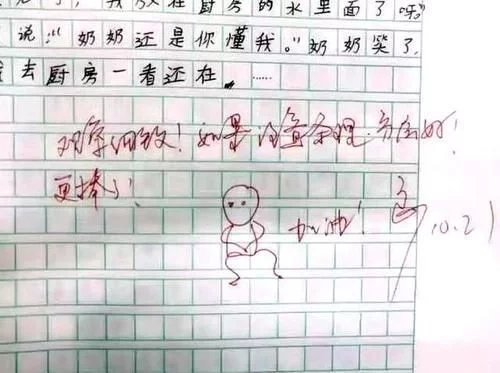 我放在厨房的水里面了呀。”
说：“奶奶还是你懂我。”奶奶笑了，
去厨房一看还在。……
观察细致！如果内容条理、
更棒了！
加油！
10.21